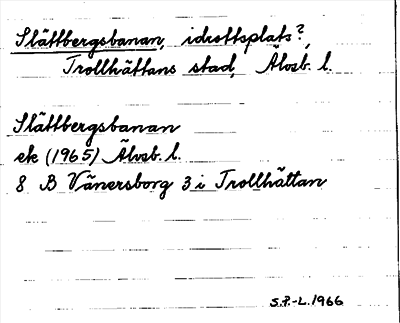 Slättbergsbanan, idrottsplats?,
Trollhättans stad, Älvsb. l.
Slättbergsbanan
ek (1965) Älvsb. l.
8 B Vänersborg 3 i Trollhättan
S.P.-L. 1966